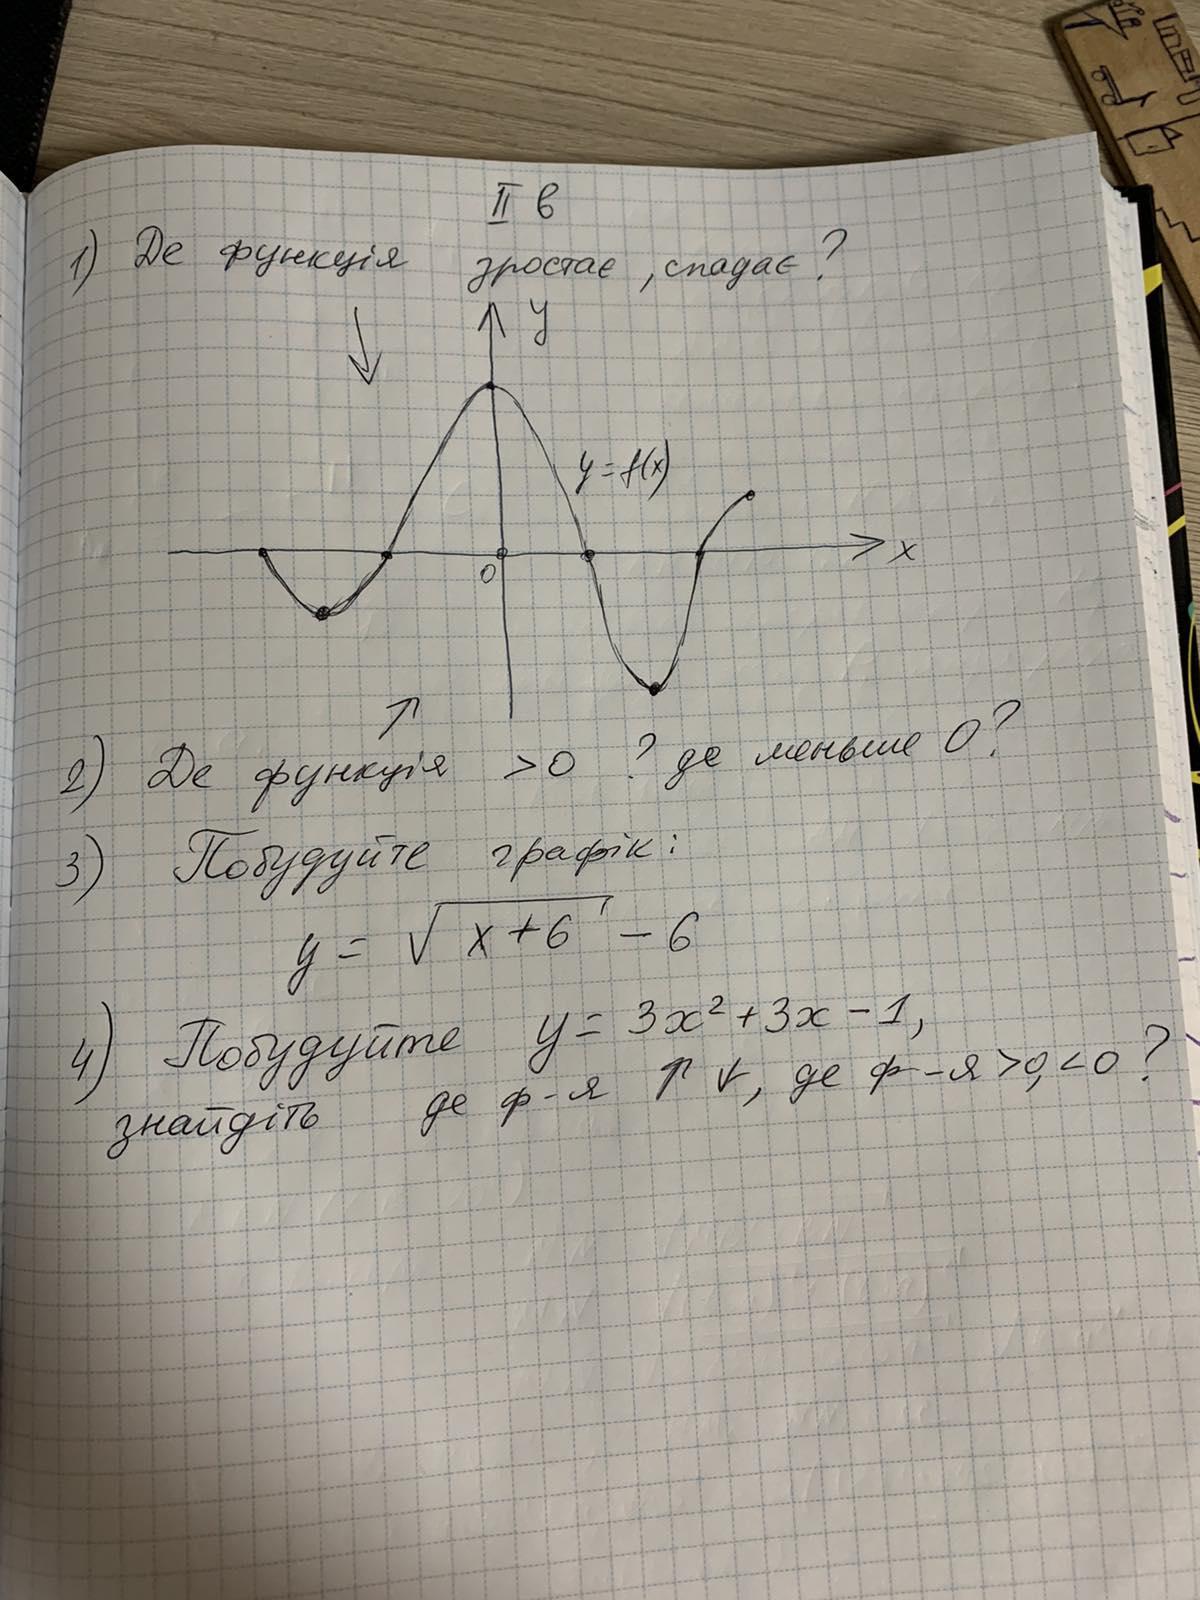 II в
1) Де функція зростає, спадає?
y
y = f(x)
0
x
2) Де функція >0 ? де меньше 0?
3) Побудуйте графік:
y = √(x+6) - 6
4) Побудуйте y = 3x² + 3x - 1,
знайдіть де ф-я ↑ ↓, де ф-я >0, <0?